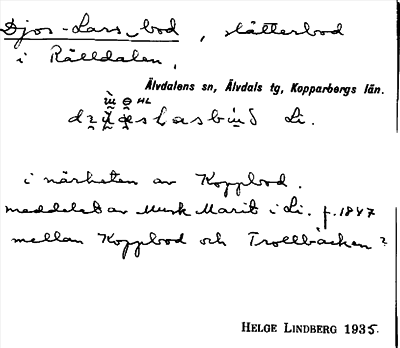 Djos-Lars-bod, slåtterbod
i Rälldalen,
Älvdalens sn, Älvdals tg, Kopparbergs län.
HL
Li.
i närheten av Koppbod.
meddelat av Musk Marit i Li. f. 1847
mellan Koppbod och Trollbäcken?
HELGE LINDBERG 1935.